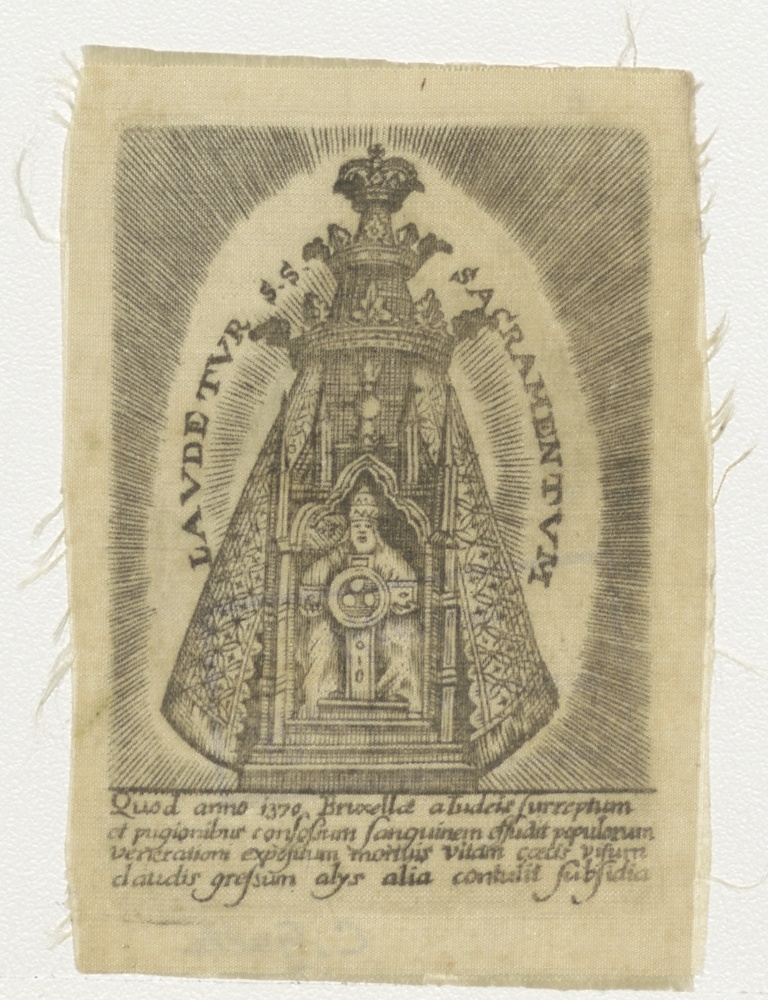 LAVDETUR S.S. SACRAMENTVM
Quod anno 1370, Bruxellæ a Iudeis surreptum
et pugionibus confossum sanguinem effudit populorum
venerationi expositum mortuis vitam cæcis visum
claudis gressum alys alia contulit subsidia